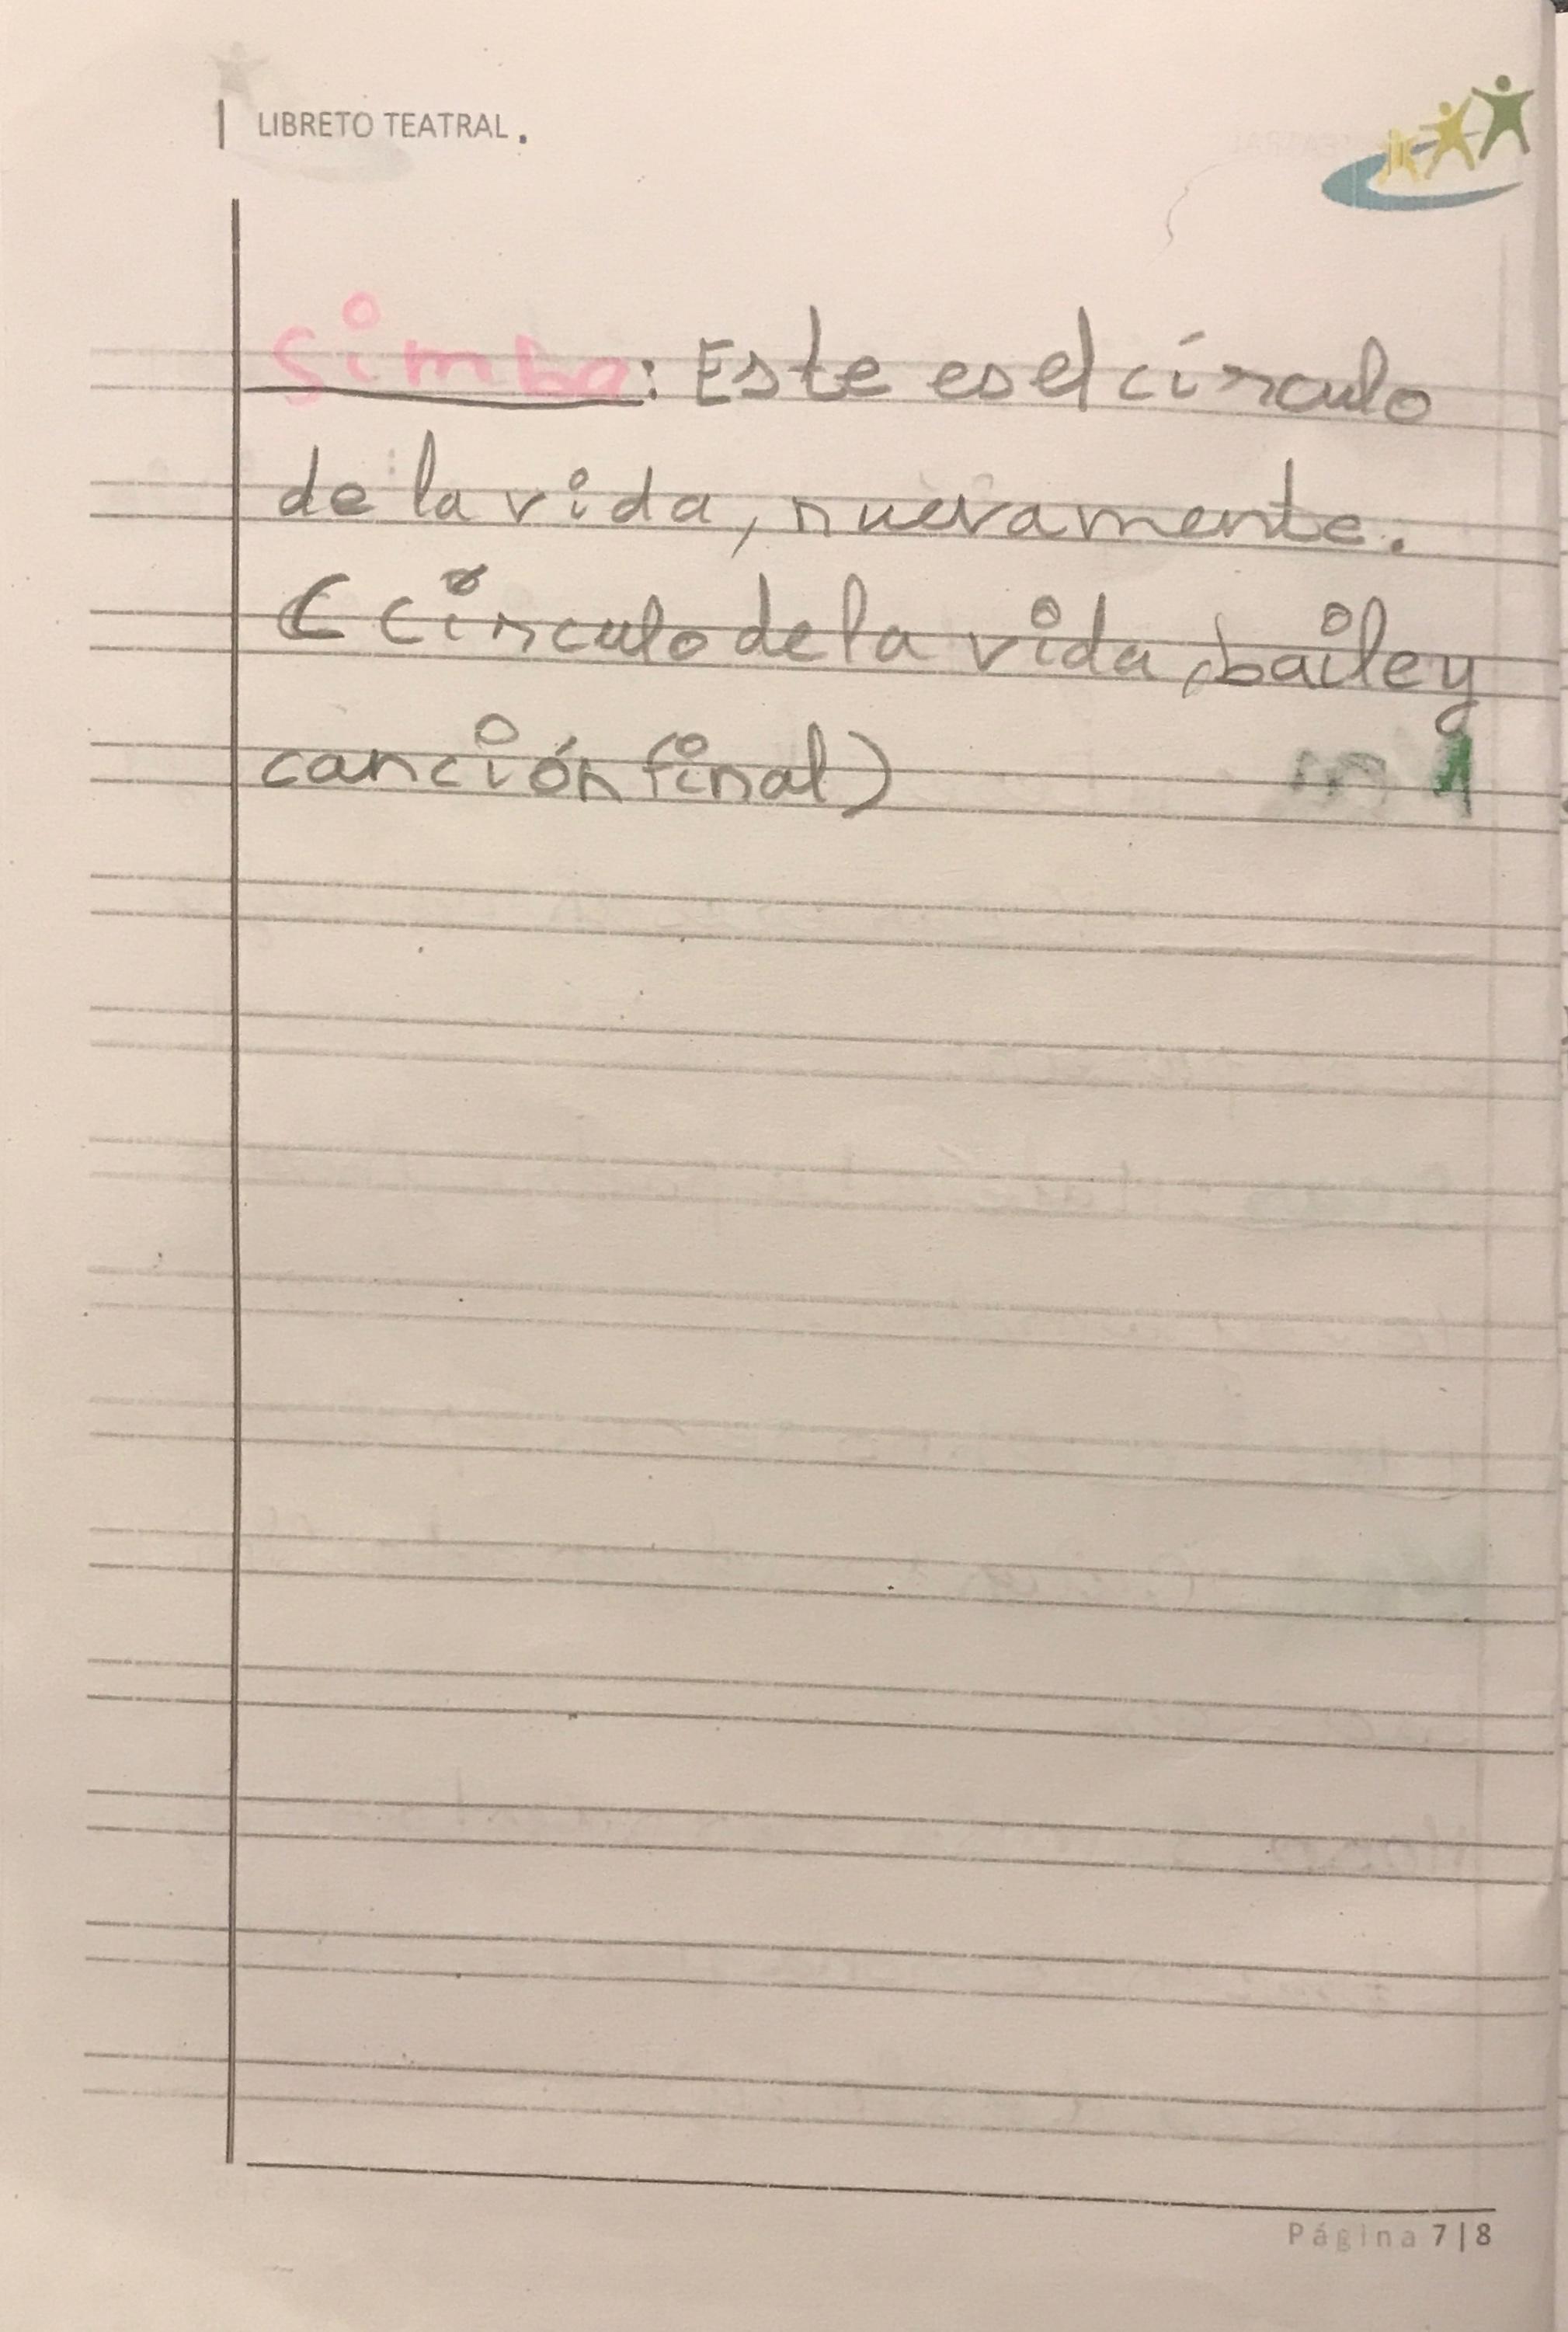 LIBRETO TEATRAL.
Simba: Este es el círculo
de la vida, nuevamente.
(círculo de la vida, baile y
canción final)
Página 7|8